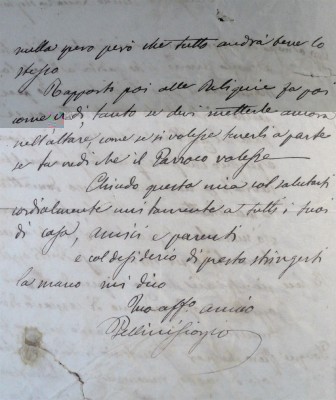 nulla pero però che tutto andrà bene lo
stesso
Rapporti poi alle Reliquie fa poi
come di tanto se devi metterle ancora
nell'altare, come se si volesse tenerli a parte
se tu vedi che il Parroco volesse
Chiudo questa mia col salutarti
cordialmente unitamente a tutti i tuoi
di casa, amici e parenti
e col desiderio di presto stringerti
la mano mi dico
Tuo aff.o amico